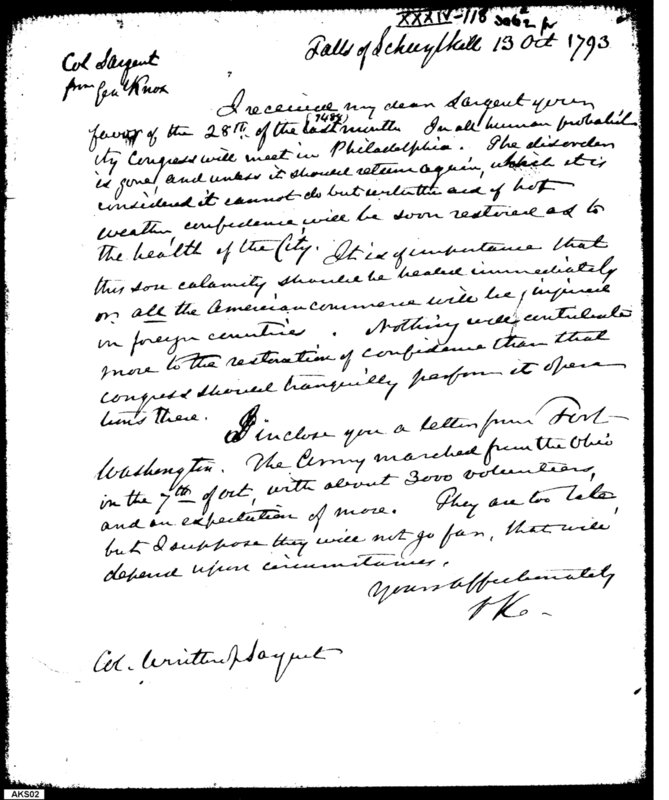 XXXIV-118
Col Sargent
from Genl Knox
Falls of Schuylkill 13 Oct 1793
I received my dear Sargent your
favor of the 28th of the last month In all human probabil
ity Congress will meet in Philadelphia. The disorder
is gone, and unless it should return again, which it is
considered it cannot do but with the aid of hot
weather confidence will be soon restored as to
the health of the City. It is of importance that
this sore calamity should be healed immediately
or all the American commerce will be injured
in foreign countries. Nothing will contribute
more to the restoration of confidence than that
congress should tranquilly perform it opera
tions there.
I inclose you a letter from Fort
Washington. The Army marched from the Ohio
on the 7th of Oct, with about 3000 volunteers,
and an expectation of more. They are too late
but I suppose they will not go far, that will
depend upon circumstances.
Yours affectionately
HK
Col. Winthrop Sargent
AKS02